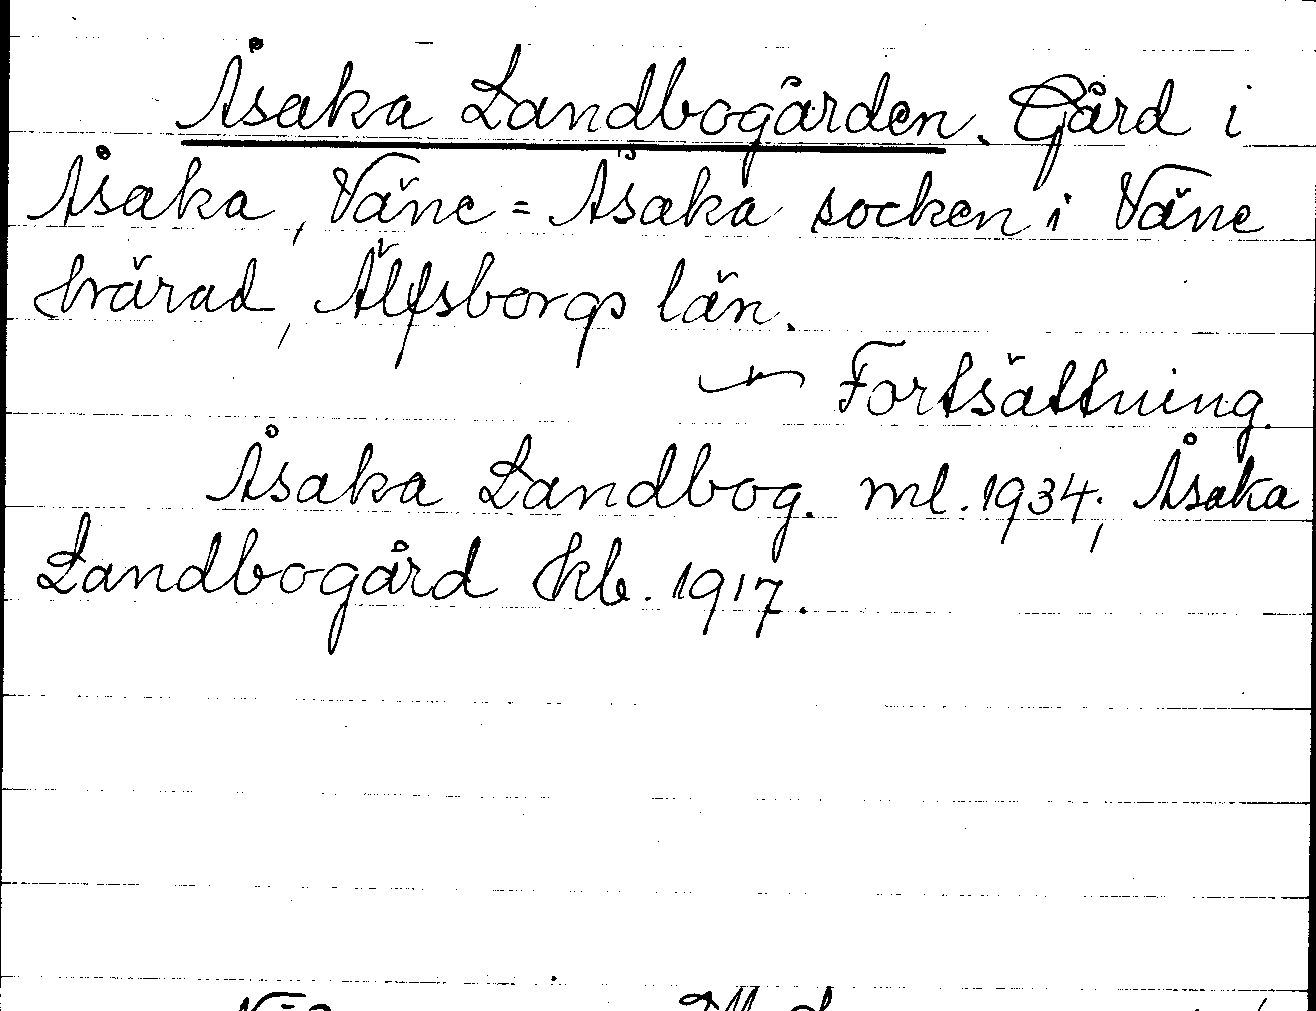 Åsaka Landbogården. Gård i
Åsaka, Väne=Åsaka socken i Väne
härad, Älfsborgs län.
Fortsättning.
Åsaka Landbog. ml. 1934; Åsaka
Landbogård kb. 1917.